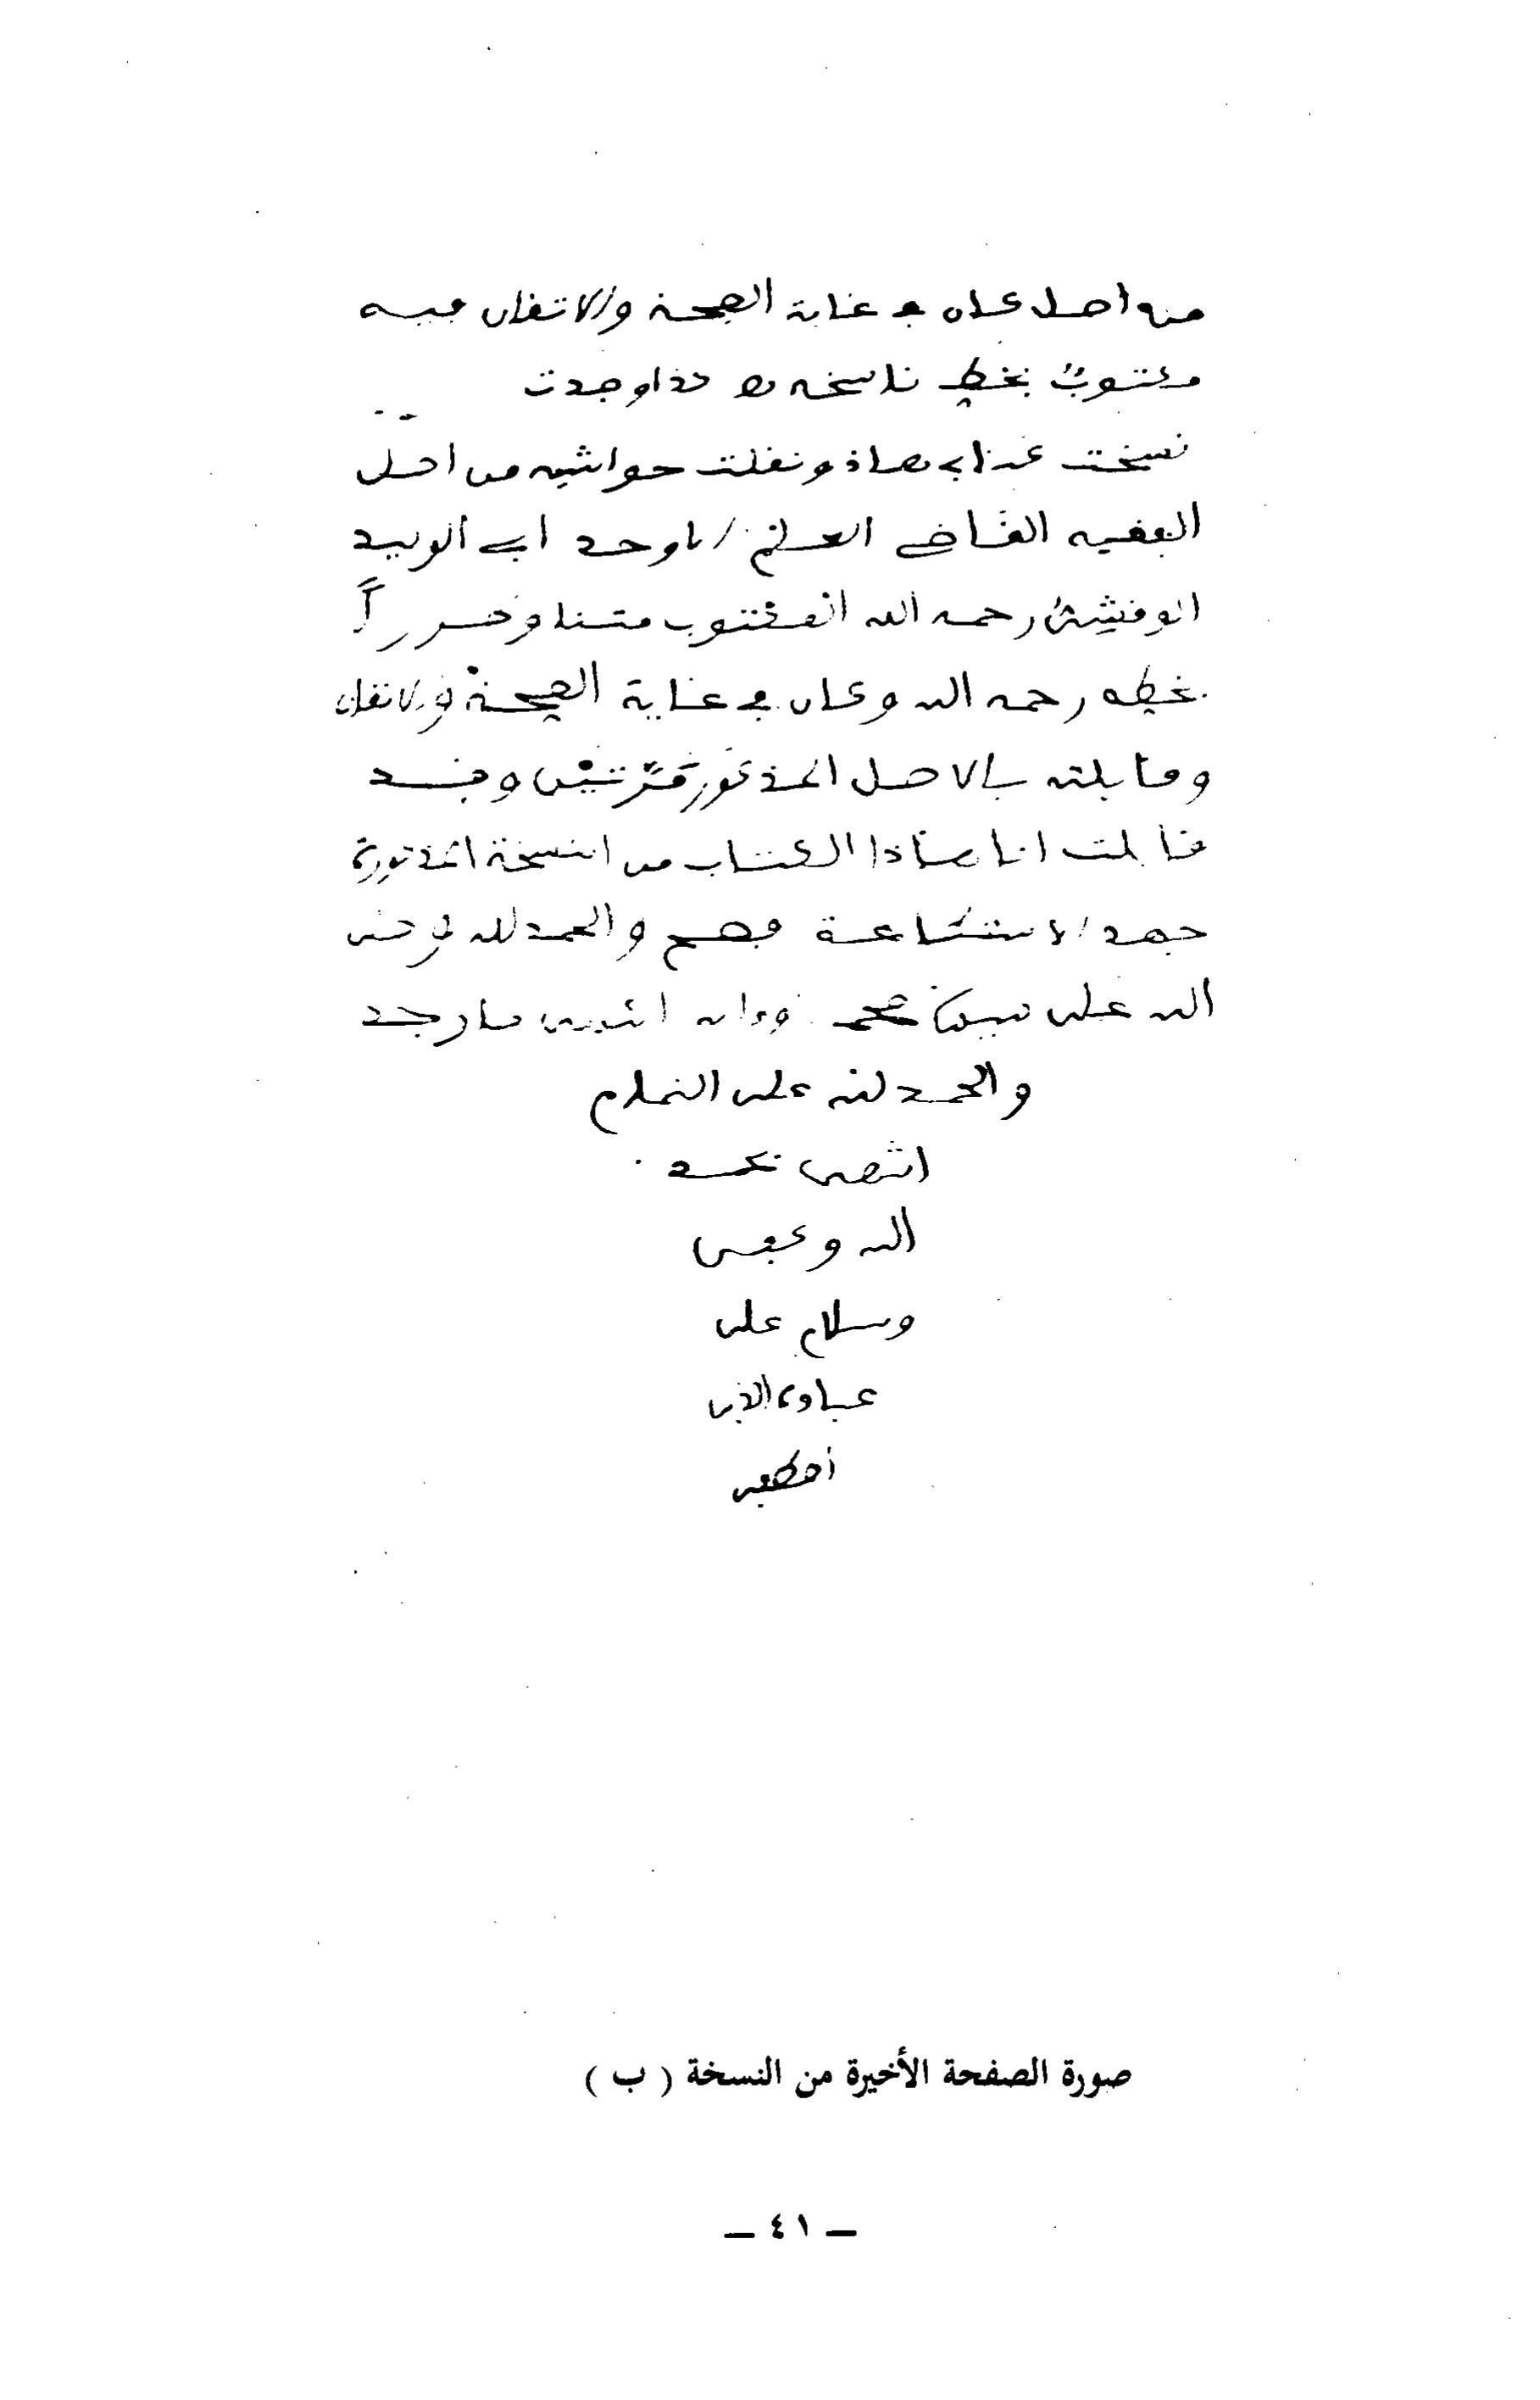 من اصل كان في غاية الصحة والاتقان فيه
مكتوب بخط ناسخه ما هذا وجدت
نسخت كتابي هذا ونقلت حواشيه من اصل
الفقيه القاضي العلم الاوحد ابي الوليد
الوقشي رحمه الله المكتوب متنا وطررا
بخطه رحمه الله وكان في غاية الصحة والاتقان
وقابلته بالاصل المذكور مرتين وقد
قابلت انا هذا الكتاب من النسخة المذكورة
جهد الاستطاعة فصح والحمد لله وصلى
الله على نبينا محمد وءاله
والحمد لله على التمام
انتهى بحمد
الله وكفى
وسلام على
عباده الذين
اصطفى
صورة الصفحة الأخيرة من النسخة ( ب )
– ٤١ –